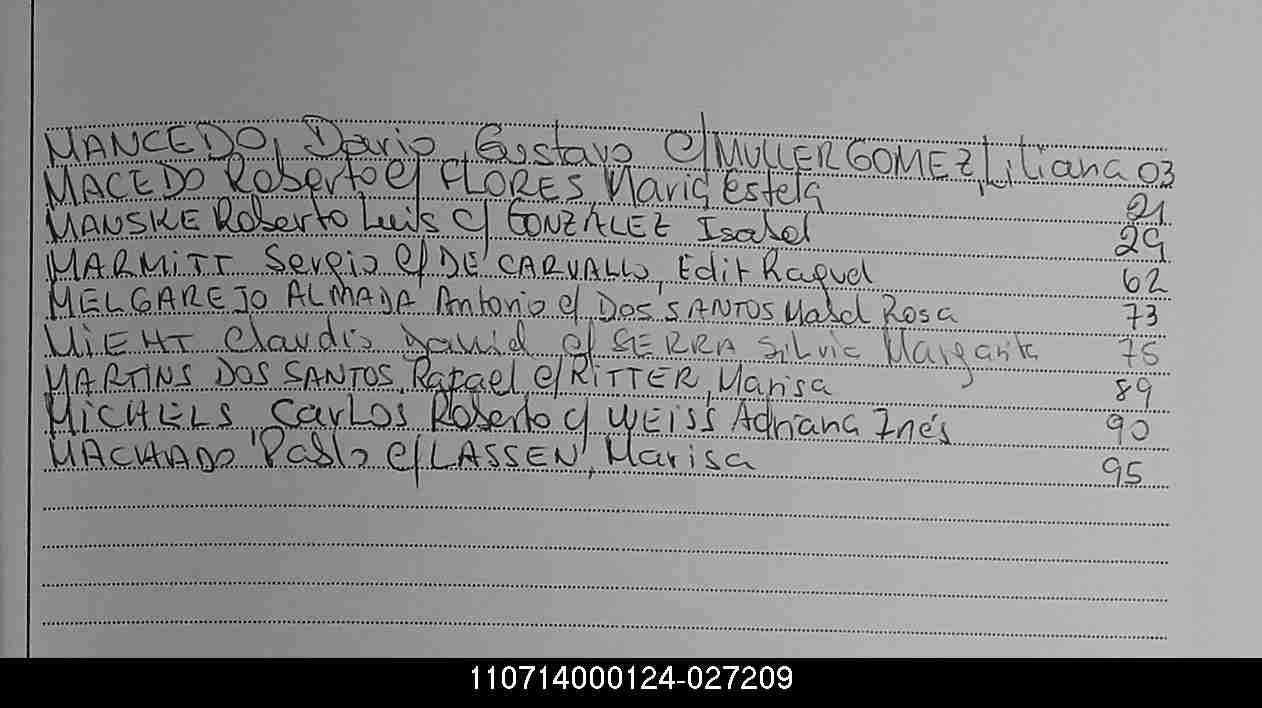 MANCEDO, Dario, Gustavo c/ MULLER GOMEZ, Liliana 03
MACEDO Roberto c/ FLORES, Maria Estela 21
MANSKE Roberto Luis c/ GONZALEZ Isabel 29
MARMITT Sergio c/ DE CARVALLO, Edit Raquel 62
MELGAREJO ALMADA Antonio c/ DOS SANTOS Mabel Rosa 73
MIEHT Claudio Daniel c/ SERRA Silvia Margarita 76
MARTINS DOS SANTOS, Rafael c/ RITTER, Marisa 89
MICHELS, Carlos Roberto c/ WEISS Adriana Inés 90
MACHADO Pablo c/ LASSEN, Marisa 95
110714000124-027209